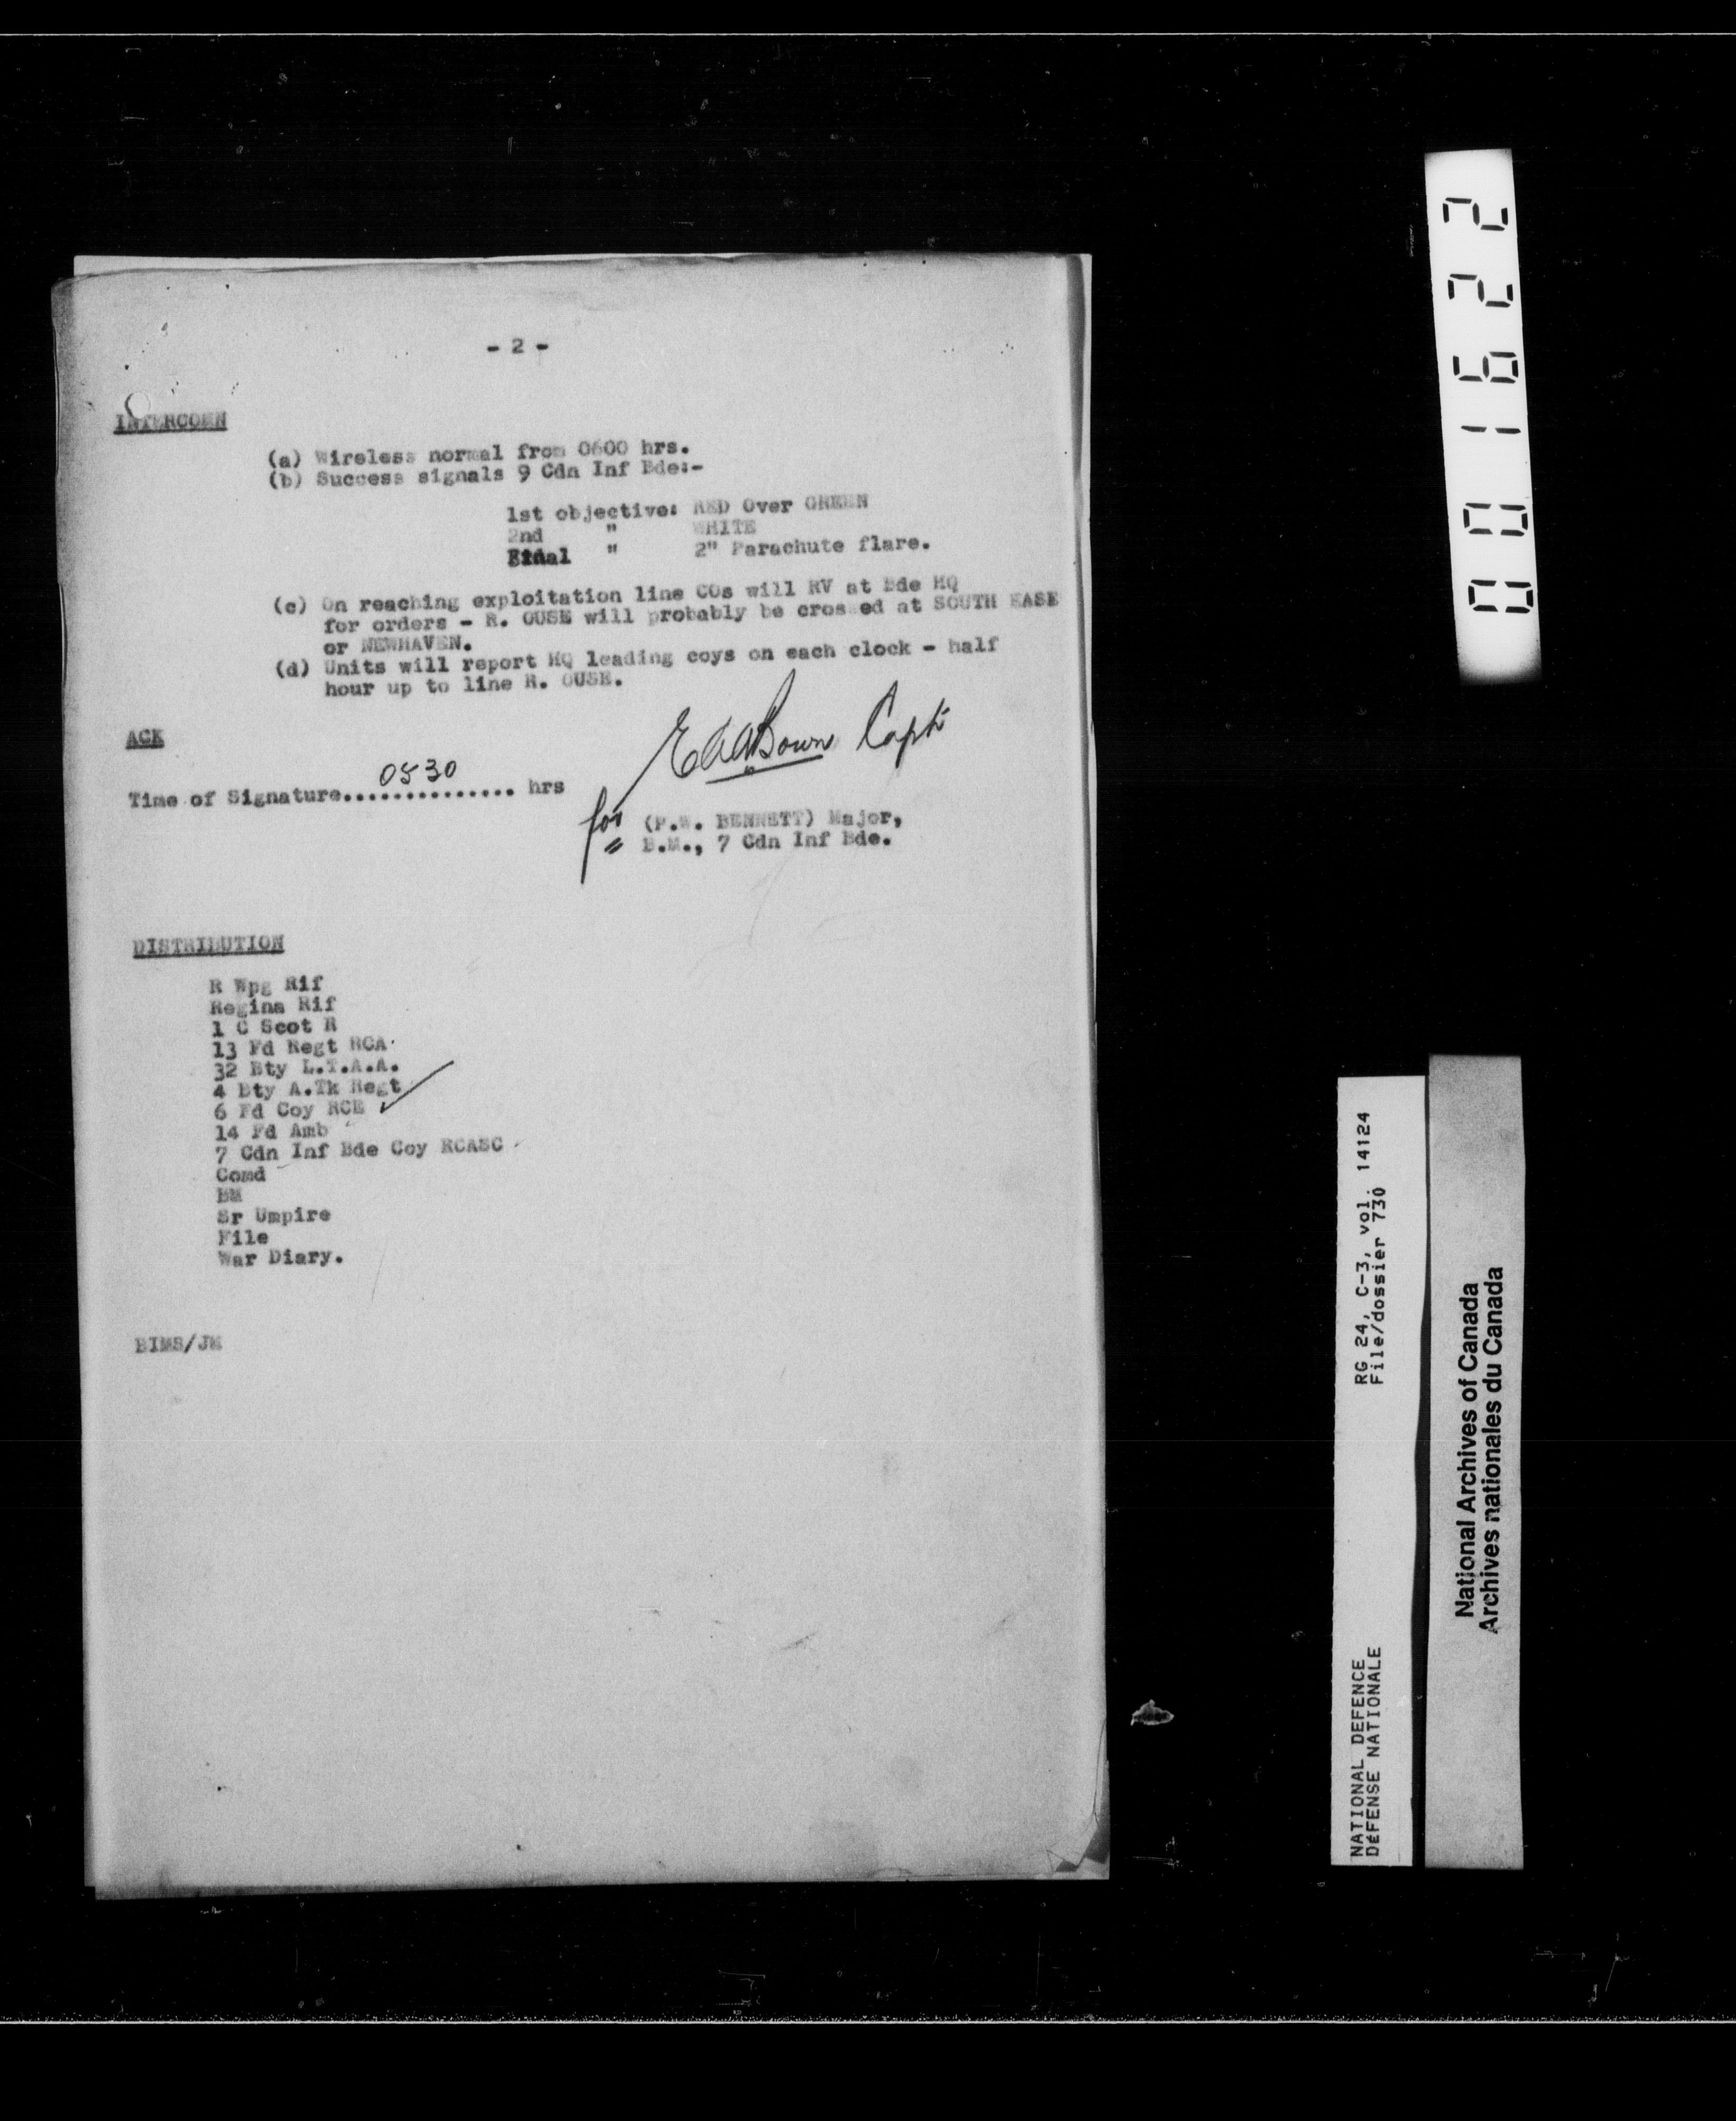 - 2 -
INTERCOMN
(a) Wireless normal from 0600 hrs.
(b) Success signals 9 Cdn Inf Bde:-
1st objective: RED Over GREEN
2nd " WHITE
Final " 2" Parachute flare.
(c) On reaching exploitation line COs will RV at Bde HQ
for orders - R. OUSE will probably be crossed at SOUTH EASE
or NEWHAVEN.
(d) Units will report HQ leading coys on each clock - half
hour up to line R. OUSE.
ACK
Capt
Time of Signature............... hrs
0530
for (P.W. BENNETT) Major,
B.M., 7 Cdn Inf Bde.
DISTRIBUTION
R Wpg Rif
Regina Rif
1 C Scot R
13 Fd Regt RCA
32 Bty L.T.A.A.
4 Bty A.Tk Regt
6 Fd Coy RCE
14 Fd Amb
7 Cdn Inf Bde Coy RCASC
Comd
BM
Sr Umpire
File
War Diary.
BIMS/JM
001622
RG 24, C-3, vol. 14124
File/dossier 730
NATIONAL DEFENCE
DÉFENSE NATIONALE
National Archives of Canada
Archives nationales du Canada